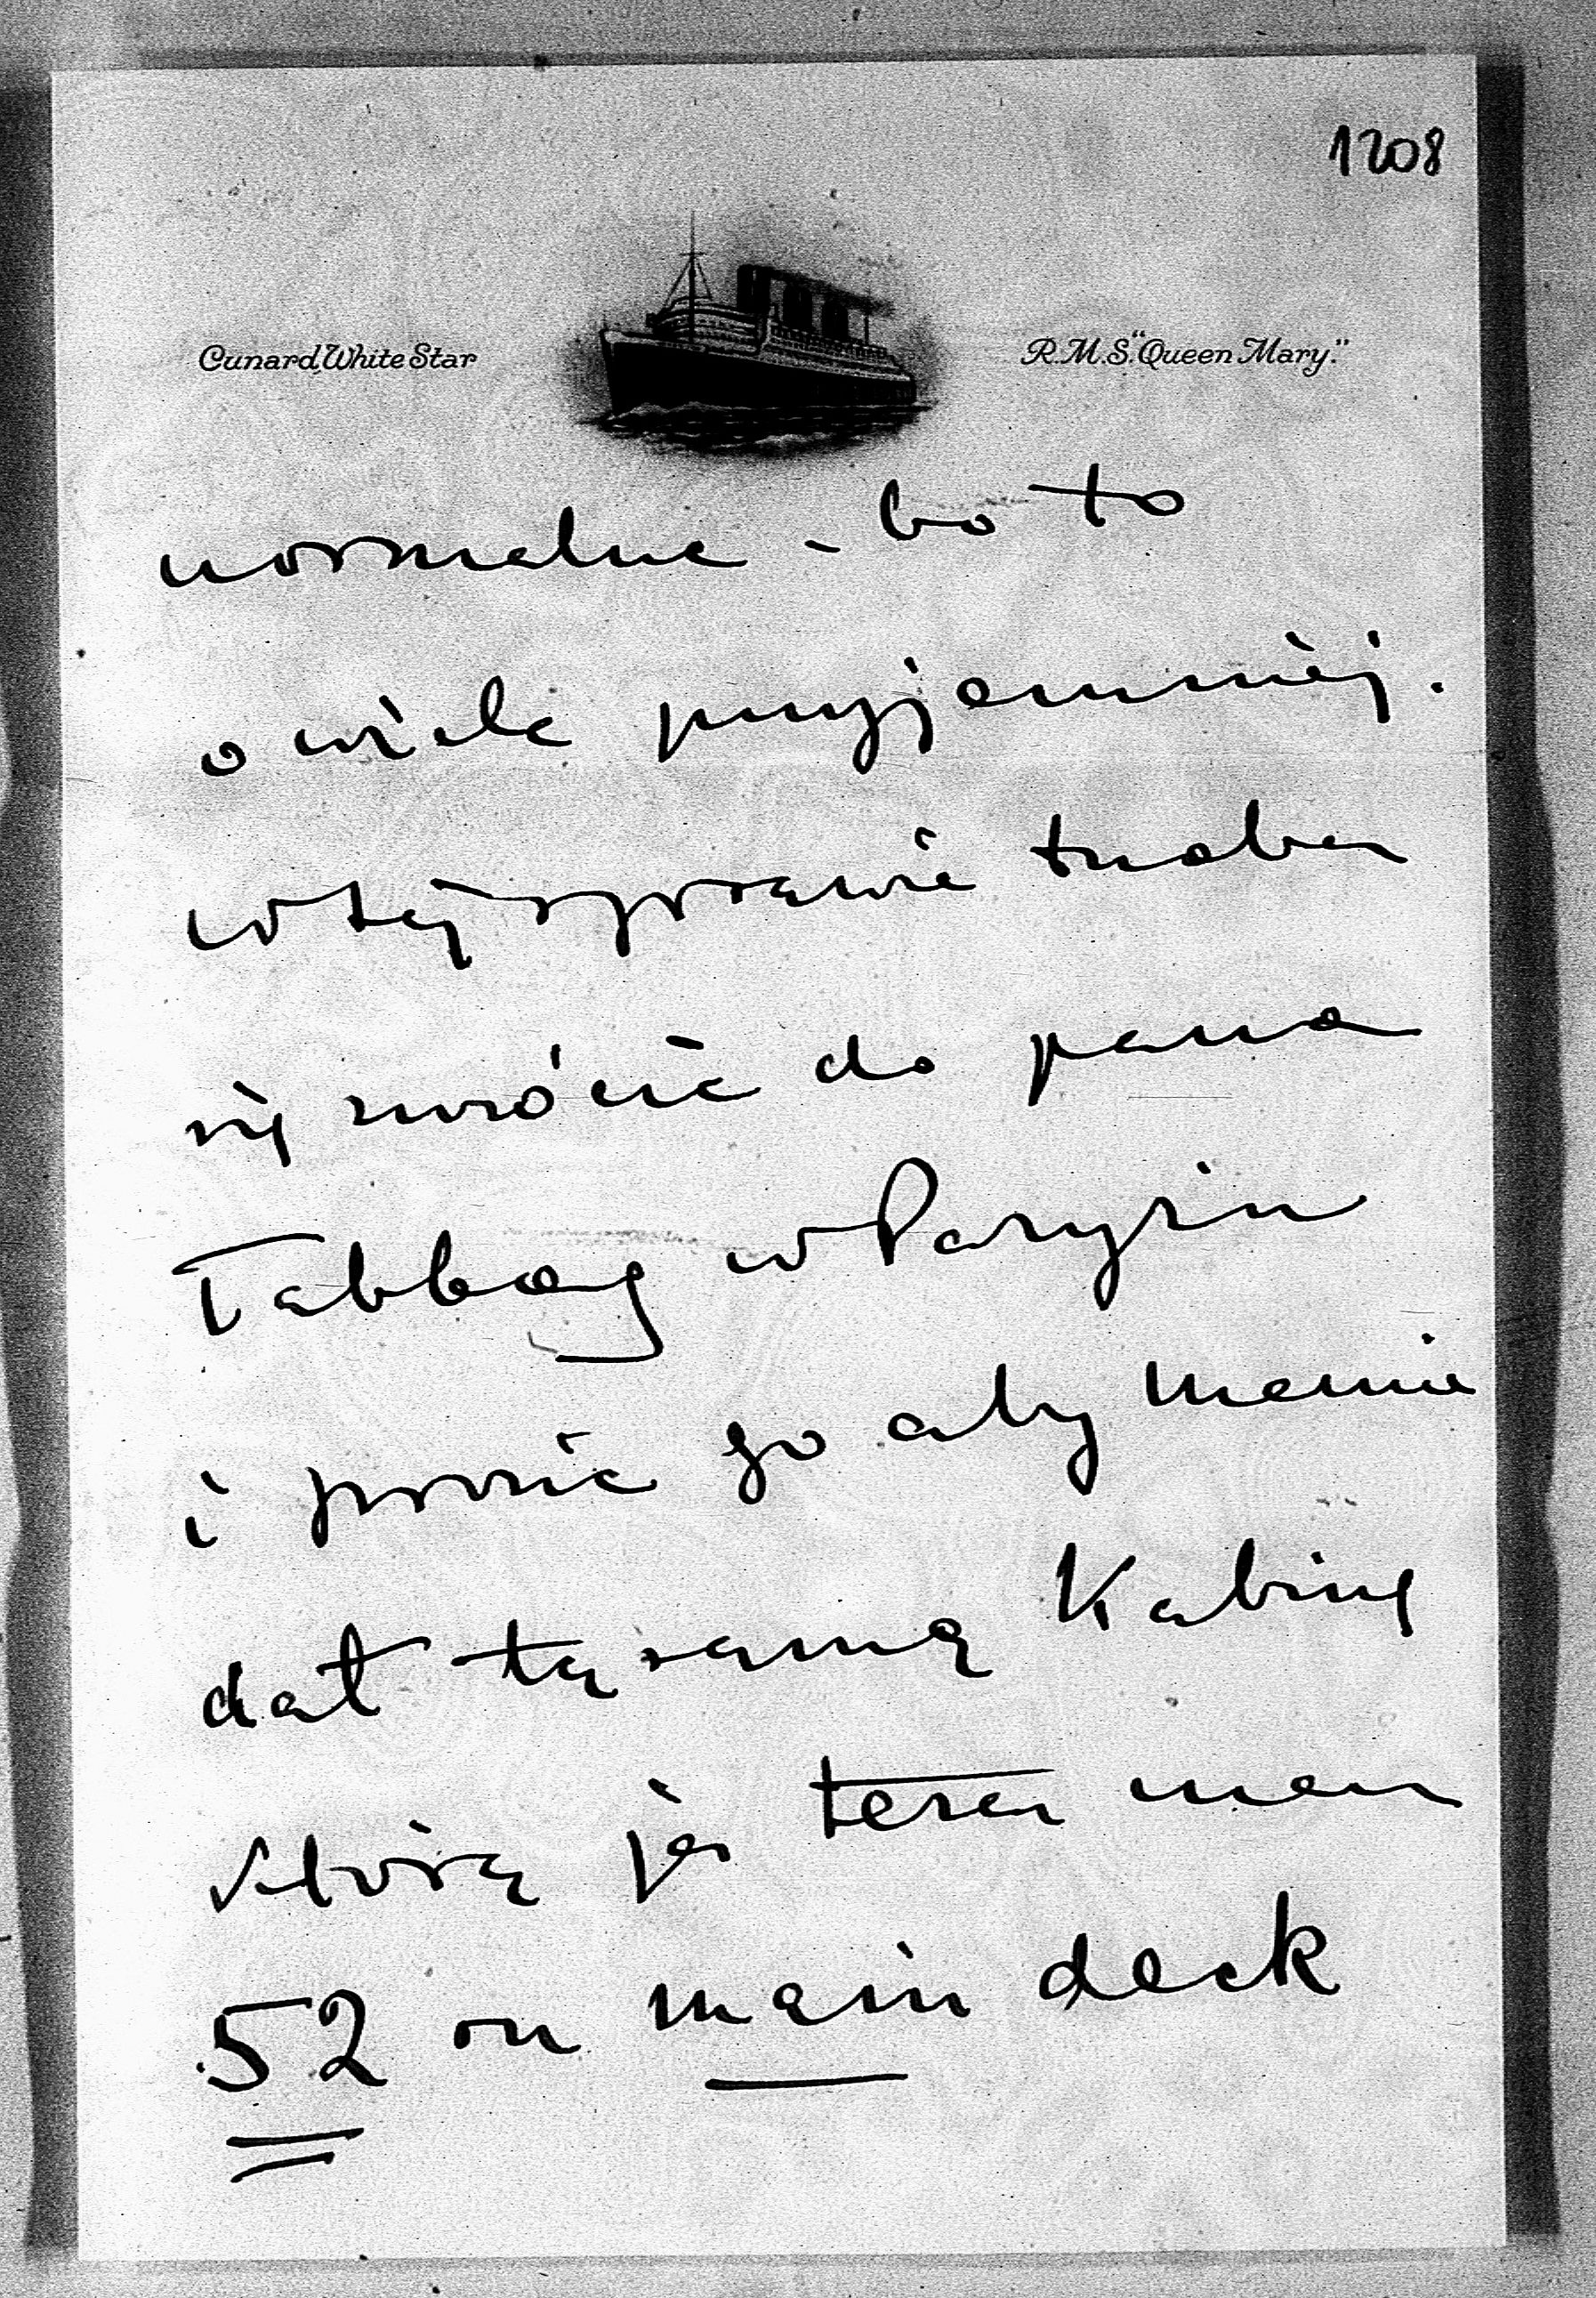 1208
Cunard White Star
R.M.S. "Queen Mary."
normalne - bo to
o wiele przyjemniej.
w tej sprawie trzeba
się zwrócić do pana
Tabbag w Paryżu
i prosić go aby mamie
dał tą samą Kabinę
którą ja teraz mam
52 on main deck